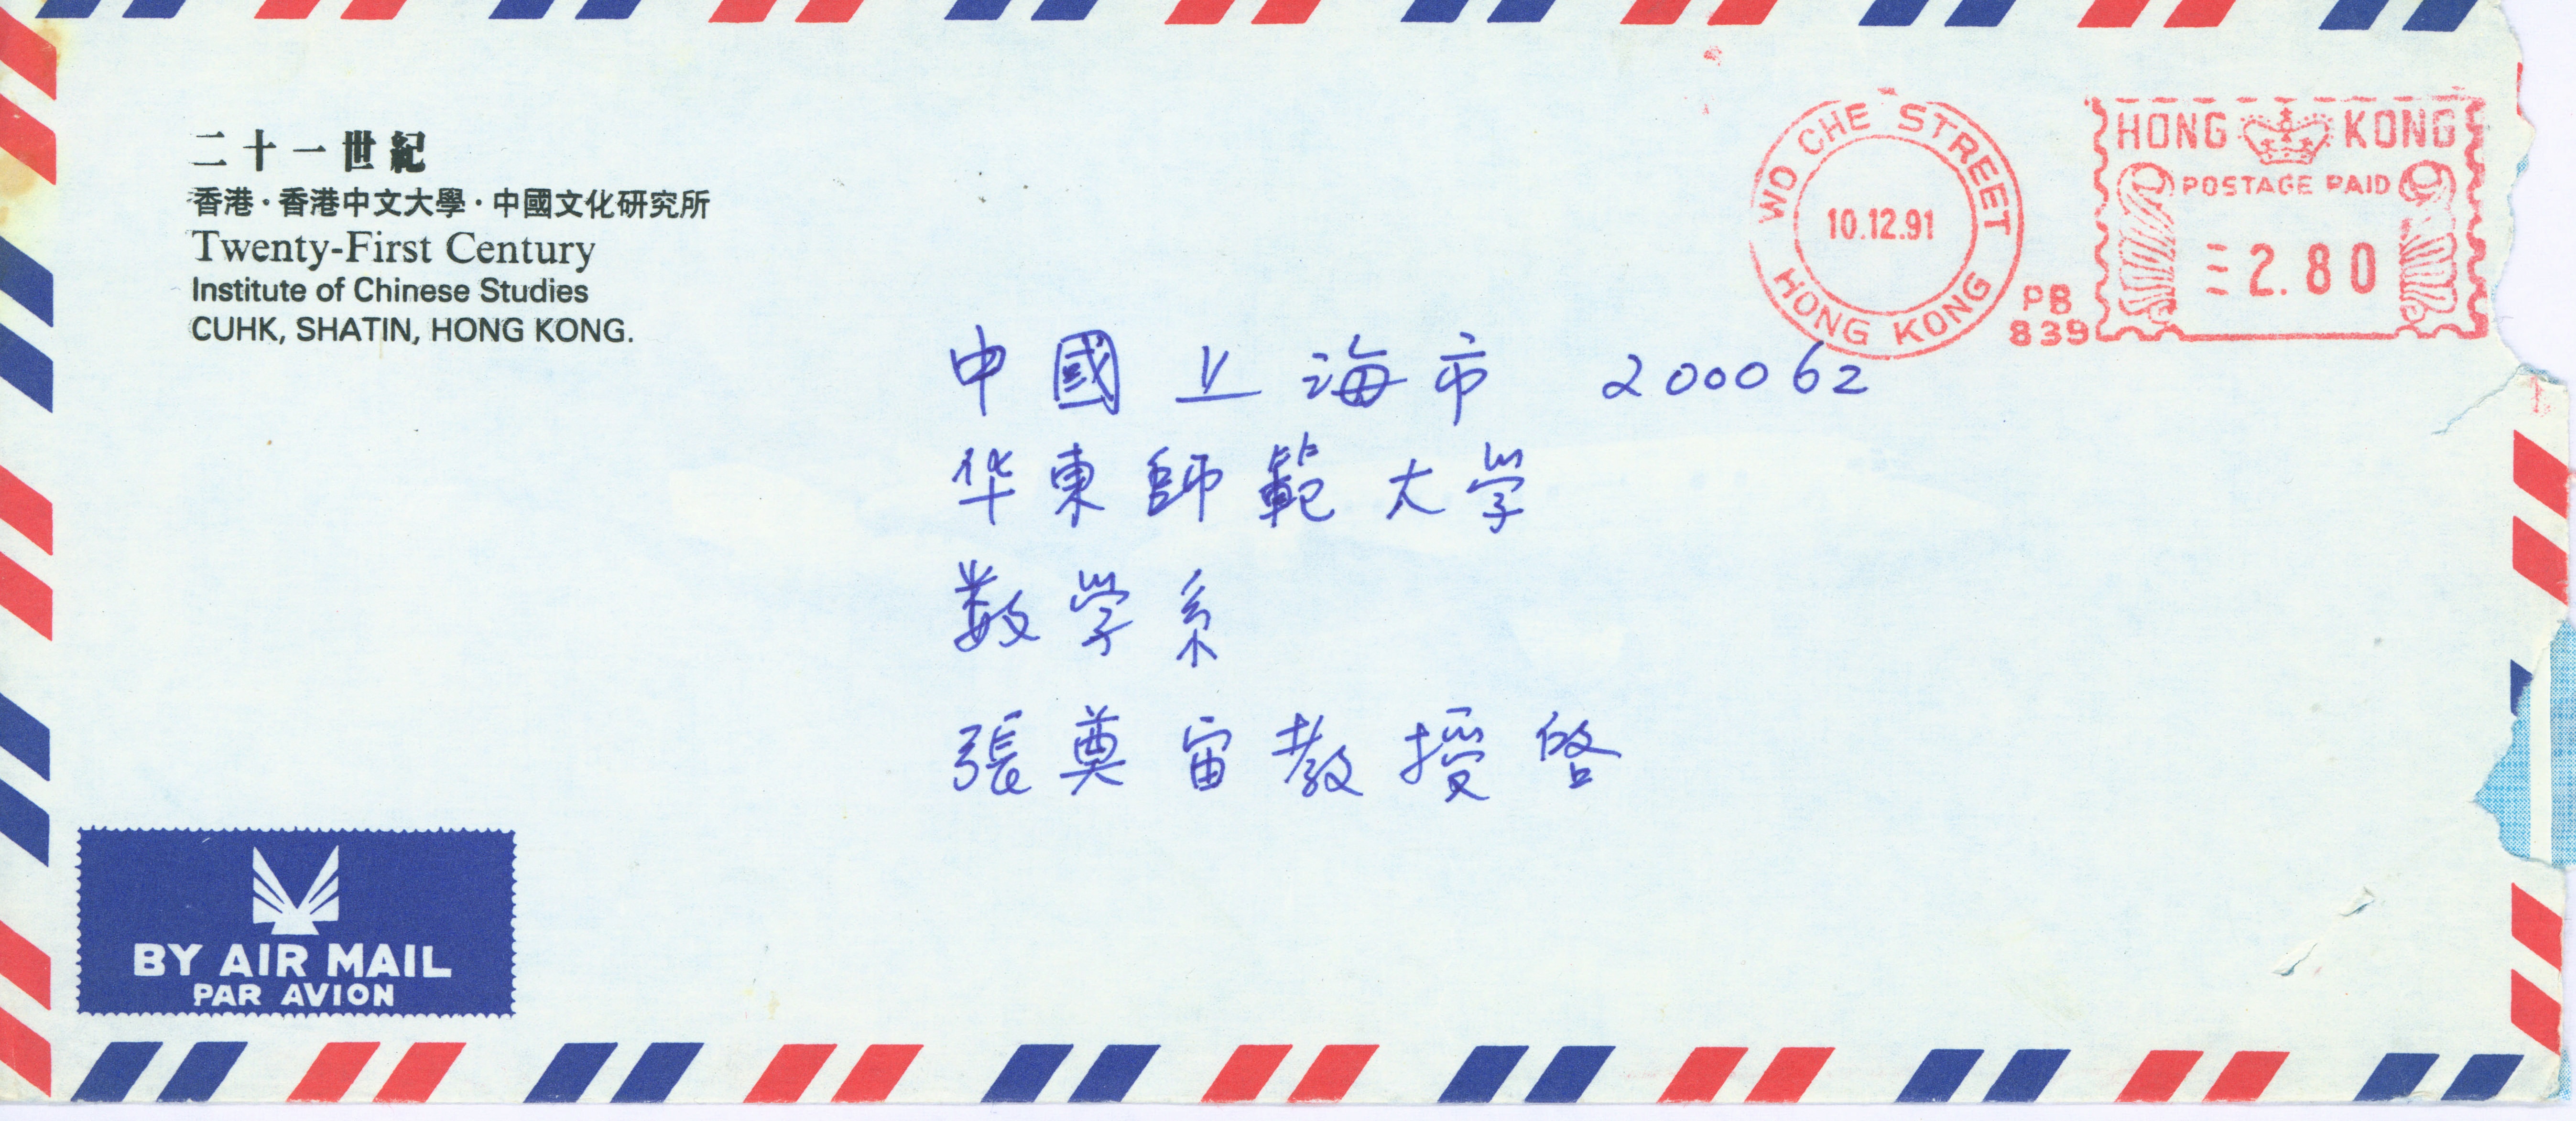 二十一世紀
香港·香港中文大學·中國文化研究所
Twenty-First Century
Institute of Chinese Studies
CUHK, SHATIN, HONG KONG.
WO CHE STREET
10.12.91
HONG KONG
PB
839
HONG KONG
POSTAGE PAID
2.80
中國上海市 200062
华東師範大学
数学系
張奠宙教授啓
BY AIR MAIL
PAR AVION